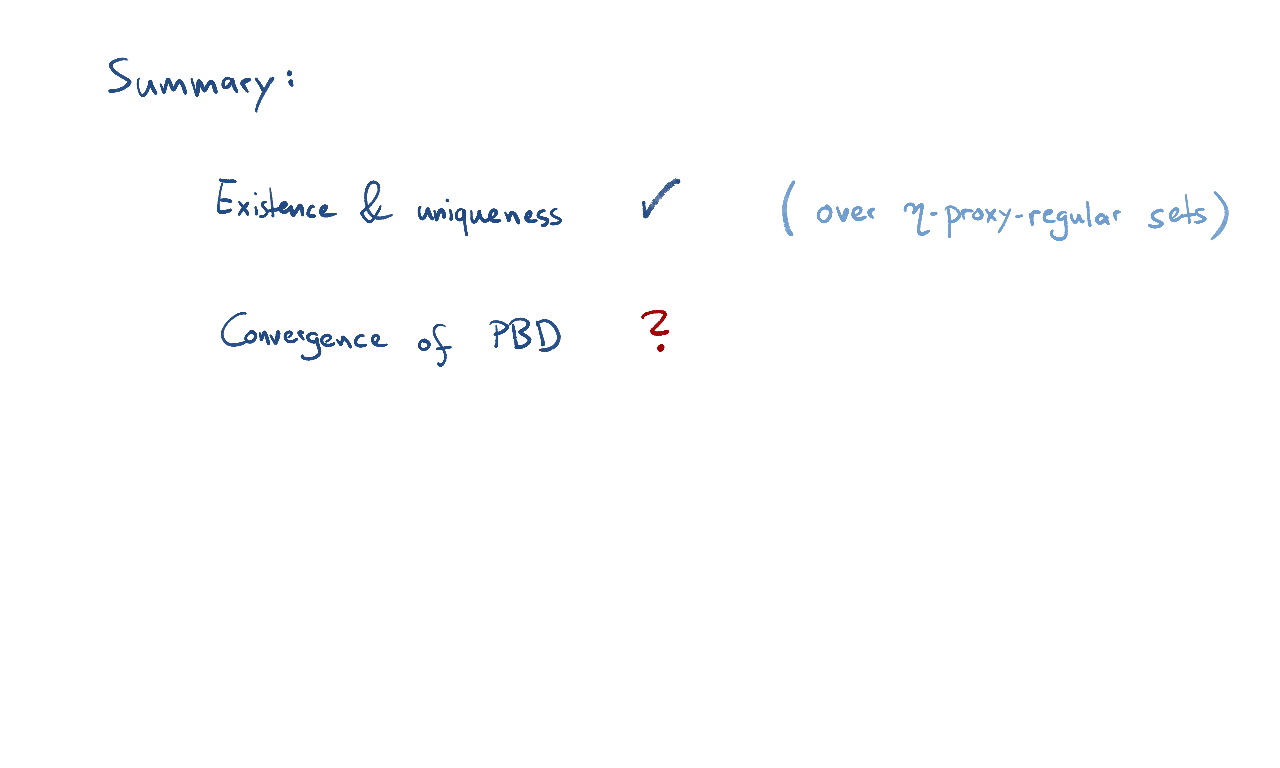 Summary:
Existence & uniqueness ✓ (over η-proxy-regular sets)
Convergence of PBD ?